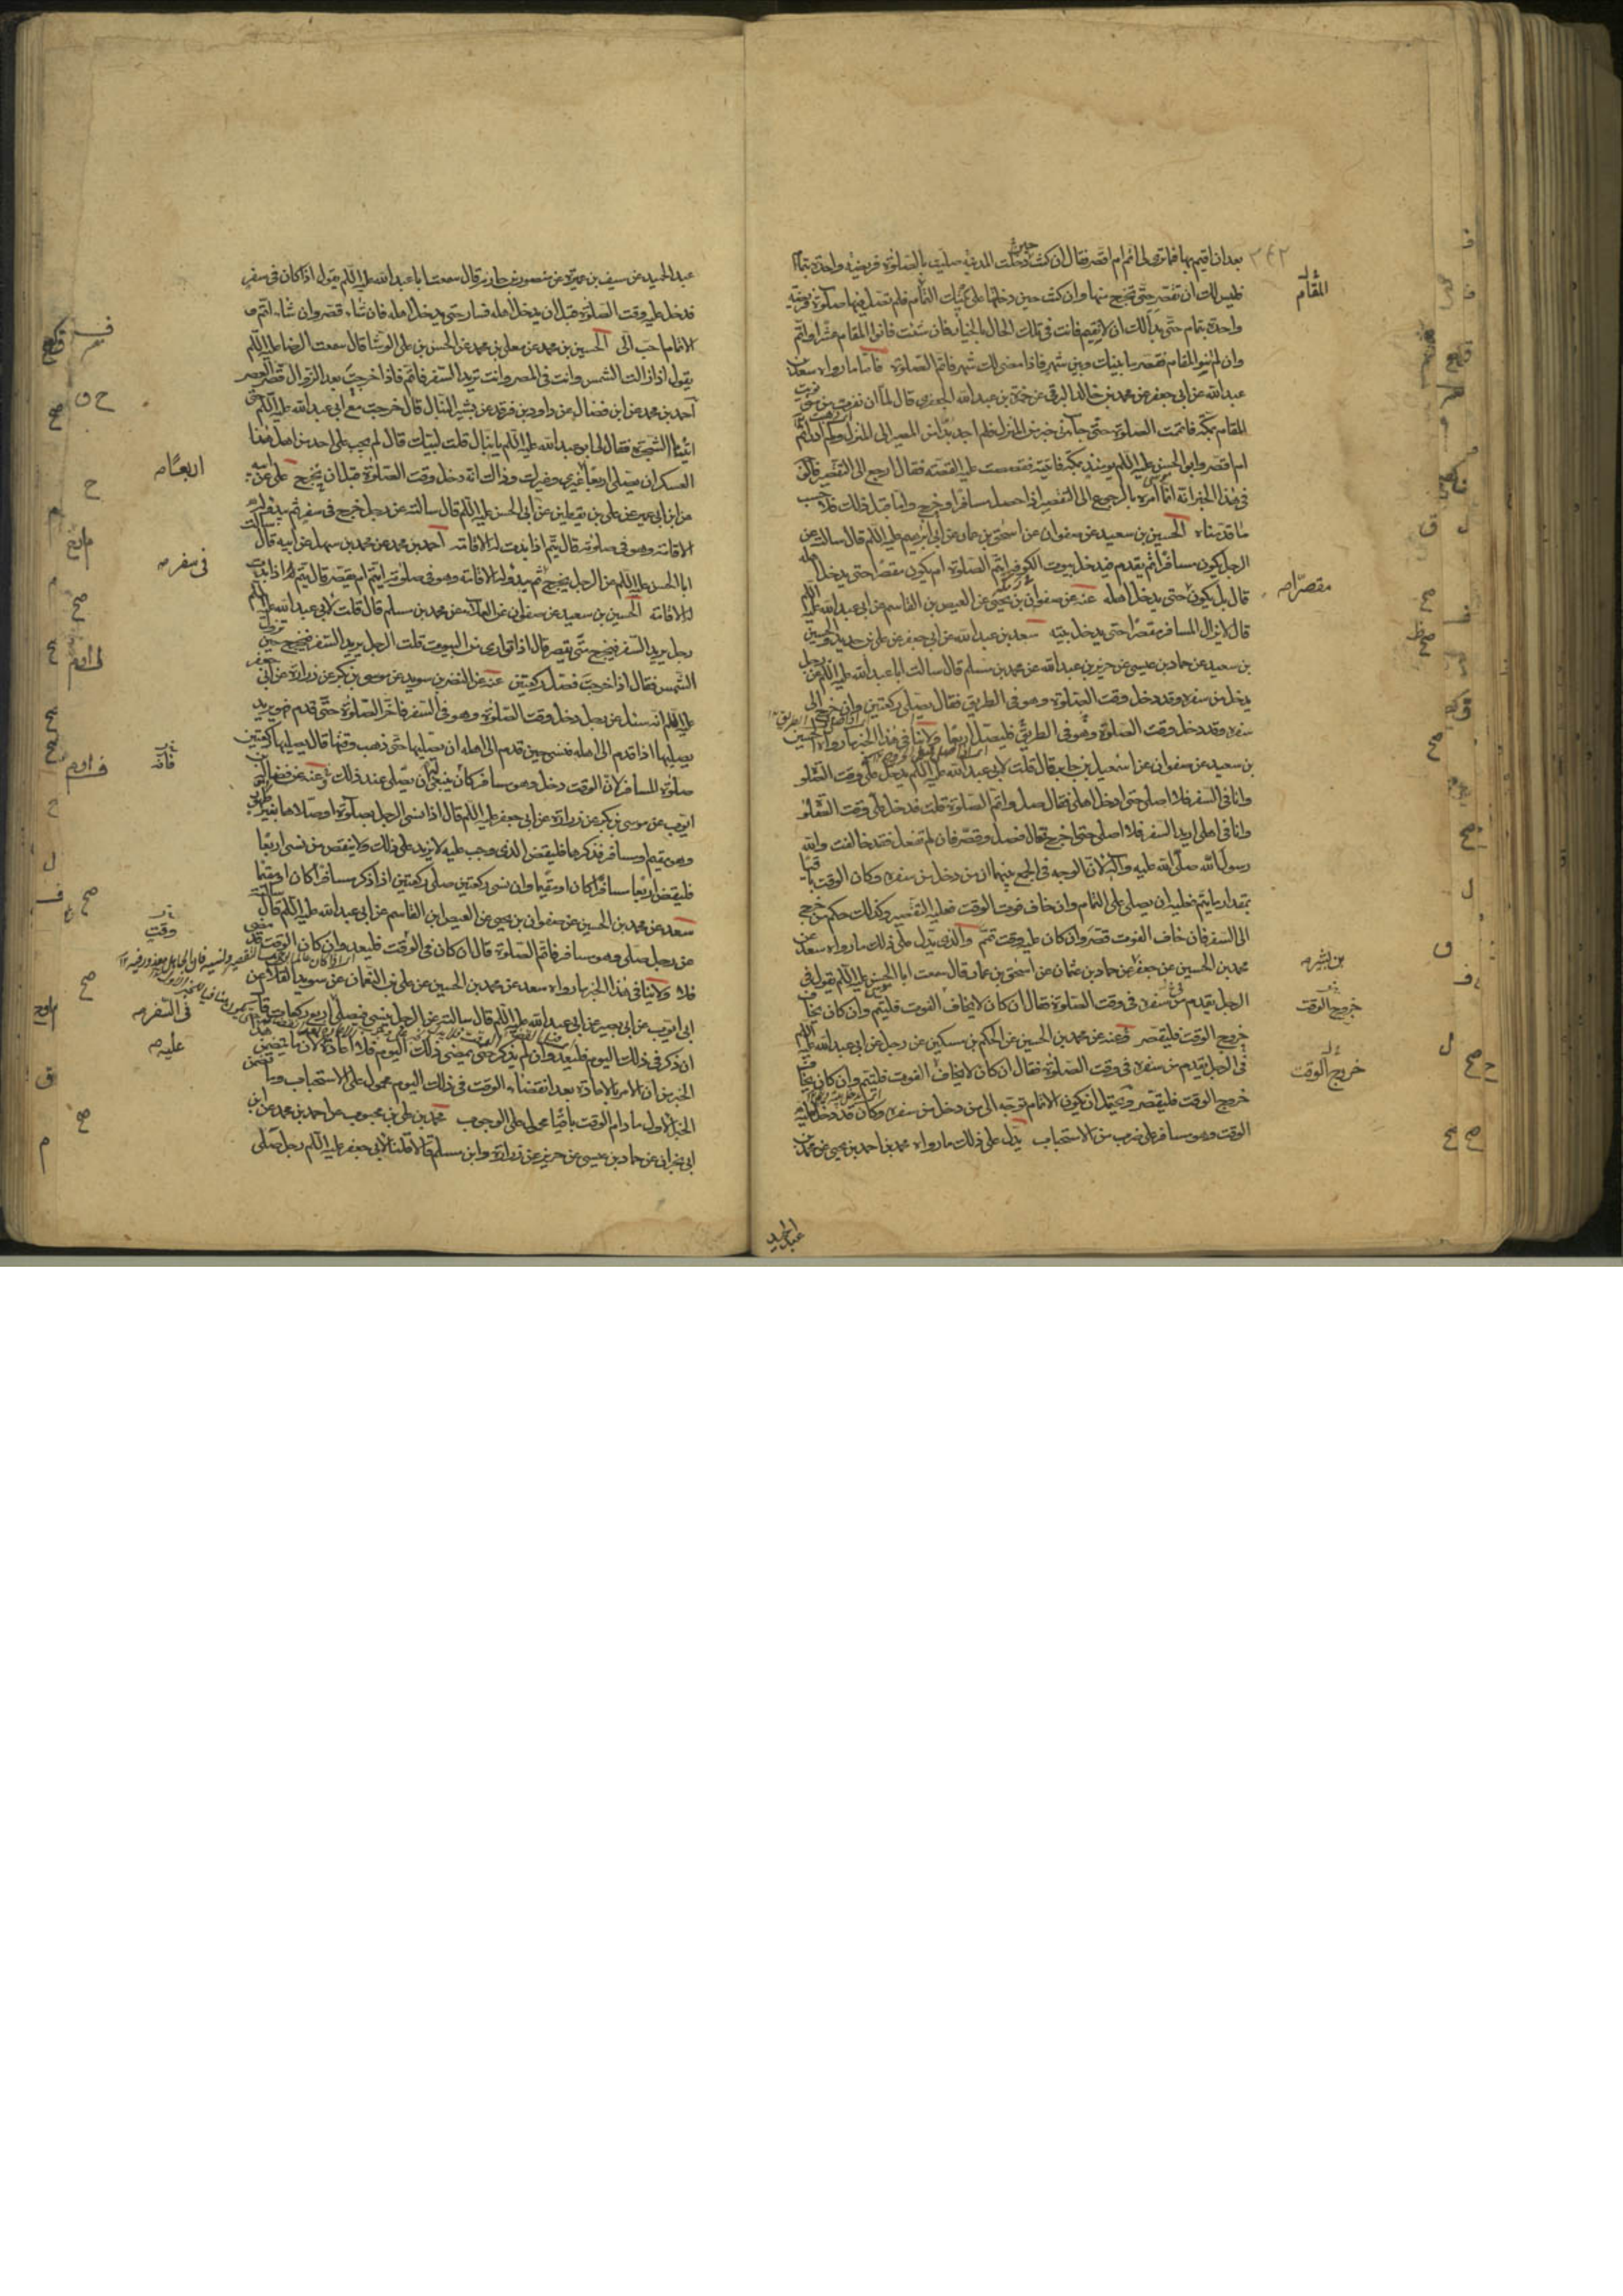 بعد ان اقيم بها فما ترى لى اتم ام اقصر فقال ان كنت حين دخلت المدينة صليت بها صلوة فريضة واحدة بتمام
فليس لك ان تقصر حتى تخرج منها وان كنت حين دخلتها على نيتك التمام فلم تصل فيها صلوة فريضة
واحدة بتمام حتى بدا لك ان لا تقيم فانت فى تلك الحال بالخيار فان شئت فانو المقام عشرا واتم
وان لم تنو المقام فقصر ما بينك وبين شهر فاذا مضى لك شهر فاتم الصلوة فاما ما رواه سعد بن
عبد الله عن ابى جعفر عن محمد بن خالد البرقى عن حمزة بن عبد الله الجعفرى قال لما ان نفرت من منى نويت
المقام بمكة فاتممت الصلوة حتى جاءنى خبر من المنزل فلم اجد بدا من المصير الى المنزل ولم ادر اتم
ام اقصر وابو الحسن عليه السلم يومئذ بمكة فاتيته فقصصت عليه القصة فقال ارجع الى التقصير فالوجه
فى هذا الخبر انه انما امره بالرجوع الى التقصير اذا حصل مسافرا وخرج واما قبل ذلك فلا حسب
ما قدمناه الحسين بن سعيد عن صفوان عن اسحق بن عمار عن ابى ابرهيم عليه السلم قال سالته عن
الرجل يكون مسافرا ثم يقدم فيدخل بيوت الكوفة ايتم الصلوة ام يكون مقصرا حتى يدخل اهله
قال بل يكون حتى يدخل اهله عنه عن صفوان بن يحيى عن العيص بن القاسم عن ابى عبد الله عليه السلم
قال لا يزال المسافر مقصرا حتى يدخل بيته سعد بن عبد الله عن ابى جعفر عن على بن حديد والحسين
بن سعيد عن حماد بن عيسى عن حريز بن عبد الله عن محمد بن مسلم قال سالت ابا عبد الله عليه السلم عن رجل
يدخل من سفره وقد دخل وقت الصلوة وهو فى الطريق فقال يصلى ركعتين وان خرج الى
سفره وقد دخل وقت الصلوة وهو فى الطريق فليصل اربعا ولا ينافى هذا الخبر ما رواه الحسين
بن سعيد عن صفوان عن اسمعيل بن جابر قال قلت لابى عبد الله عليه السلم يدخل على وقت الصلوة
وانا فى السفر فلا اصلى حتى ادخل اهلى فقال صل واتم الصلوة قلت فدخل على وقت الصلوة
وانا فى اهلى اريد السفر فلا اصلى حتى اخرج قال فصل وقصر فان لم تفعل فقد خالفت والله
رسول الله صلى الله عليه وآله لان الوجه فى الجمع بينهما ان من دخل من سفره وكان الوقت باقيا
بمقدار ما يتم فعليه ان يصلى على التمام وان خاف فوت الوقت فعليه التقصير وكذلك حكم من خرج
الى السفر فان خاف الفوت قصر وان كان عليه وقت تمم والذى يدل على ذلك ما رواه سعد عن
محمد بن الحسين عن جعفر عن حماد بن عثمان عن اسحق بن عمار قال سمعت ابا الحسن عليه السلم يقول فى
الرجل يقدم من سفره فى وقت الصلوة فقال ان كان لا يخاف الفوت فليتم وان كان يخاف
خروج الوقت فليقصر عنه عن محمد بن الحسين عن الحكم بن مسكين عن رجل عن ابى عبد الله عليه السلم
فى الرجل يقدم من سفره فى وقت الصلوة فقال ان كان لا يخاف الفوت فليتم وان كان يخاف
خروج الوقت فليقصر ويحتمل ان يكون الاتمام توجه الى من دخل من سفره وكان قد دخل عليه
الوقت وهو مسافر على ضرب من الاستحباب يدل على ذلك ما رواه محمد بن احمد بن يحيى عن محمد بن
عبد الحميد
المقام
مقصرا
خروج الوقت
خروج الوقت
عبد الحميد عن سيف بن عميرة عن منصور بن حازم قال سمعت ابا عبد الله عليه السلم يقول اذا كان فى سفر
فدخل عليه وقت الصلوة قبل ان يدخل اهله فسار حتى يدخل اهله فان شاء قصر وان شاء اتم و
الاتمام احب الى الحسين بن محمد عن معلى بن محمد عن الحسن بن على الوشا قال سمعت الرضا عليه السلم
يقول اذا زالت الشمس وانت فى المصر وانت تريد السفر فاتم فاذا خرجت بعد الزوال قصر العصر
احمد بن محمد عن ابن فضال عن داود بن فرقد عن بشير النبال قال خرجت مع ابى عبد الله عليه السلم حتى
اتينا الشجرة فقال لى ابو عبد الله عليه السلم يا نبال قلت لبيك قال لم يجب على احد من اهل هذا
العسكر ان يصلى اربعا غيرى وغيرك وذاك انه دخل وقت الصلوة قبل ان يخرج على عن ابيه
عن ابن ابى عمير عن على بن يقطين عن ابى الحسن عليه السلم قال سالته عن رجل خرج فى سفر ثم يبدو له
الاقامة وهو فى صلوته قال يتم اذا بدت له الاقامة احمد بن محمد عن محمد بن سهل عن ابيه قال سالت
ابا الحسن عليه السلم عن الرجل يخرج ثم يبدو له الاقامة وهو فى صلوته ايتم ام يقصر قال يتم اذا بدت
له الاقامة الحسين بن سعيد عن صفوان عن العلاء عن محمد بن مسلم قال قلت لابى عبد الله عليه السلم
رجل يريد السفر فيخرج متى يقصر قال اذا توارى من البيوت قلت الرجل يريد السفر فيخرج حين تزول
الشمس فقال اذا خرجت فصل ركعتين عنه عن النضر بن سويد عن موسى بن بكر عن زرارة عن ابى جعفر
عليه السلم انه سئل عن رجل دخل وقت الصلوة وهو فى السفر فاخر الصلوة حتى قدم فهو يريد
يصليها اذا قدم الى اهله فنسى حين قدم الى اهله ان يصليها حتى ذهب وقتها قال يصليها ركعتين
صلوة المسافر لان الوقت دخل وهو مسافر كان ينبغى ان يصلى عند ذلك وعنه عن فضالة بن
ايوب عن موسى بن بكر عن زرارة عن ابى جعفر عليه السلم قال اذا نسى الرجل صلوة او صلاها بغير طهور
وهو مقيم او مسافر فذكرها فليقض الذى وجب عليه لا يزيد على ذلك ولا ينقص من نسى اربعا
فليقض اربعا مسافرا كان او مقيما وان نسى ركعتين صلى ركعتين اذا ذكر مسافرا كان او مقيما
سعد عن محمد بن الحسين عن صفوان بن يحيى عن العيص ابن القاسم عن ابى عبد الله عليه السلم قال سالته
عن رجل صلى وهو مسافر فاتم الصلوة قال ان كان فى الوقت فليعد وان كان الوقت قد مضى
فلا ولا ينافى هذا الخبر ما رواه سعد عن محمد بن الحسين عن على بن النعمان عن سويد القلاء عن
ابى ايوب عن ابى بصير عن ابى عبد الله عليه السلم قال سالته عن الرجل ينسى فيصلى اربع ركعات قال
ان ذكر فى ذلك اليوم فليعد وان لم يذكر حتى يمضى ذلك اليوم فلا اعادة لان ما يتضمن هذا
الخبر من ان الامر بالاعادة بعد انقضاء الوقت فى ذلك اليوم محمول على الاستحباب وما تضمن
الخبر الاول ما دام الوقت باقيا محمول على الوجوب محمد بن على بن محبوب عن احمد بن محمد عن ابن
ابى نجران عن حماد بن عيسى عن حريز عن زرارة وابن مسلم قالا قلنا لابى جعفر عليه السلم رجل صلى
اربعا
فى سفر
فانه
وقت
فى السفر
عليه